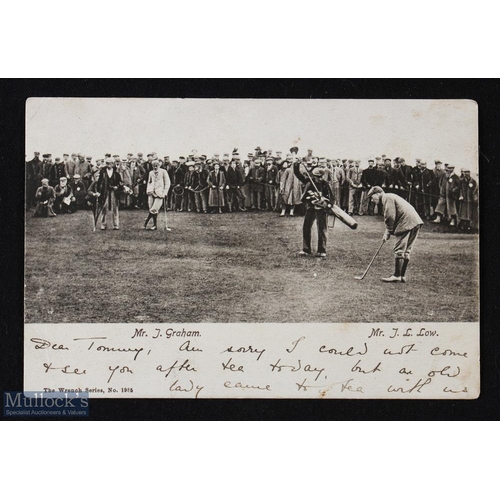 Mr. J. Graham. Mr. J. L. Low.
Dear Tommy, Am sorry I could not come
& see you after tea today, but an old
lady came to tea with us
The Wrench Series, No. 1918
Mullock's
Specialist Auctioneers & Valuers